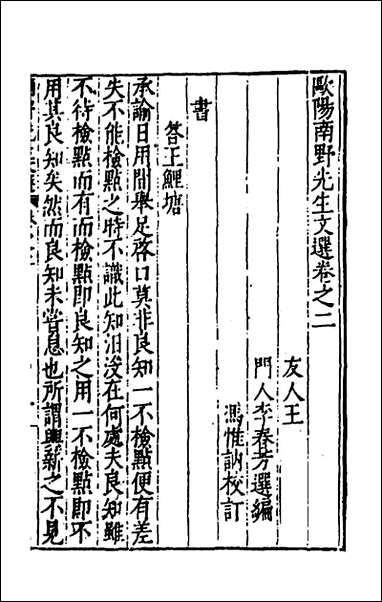 歐陽南野先生文選卷之二
友人王
門人李春芳選編
馮惟訥校訂
書
答王鯉塘
承諭日用間舉足啓口莫非良知一不檢點便有差
失不能檢點之時不識此知汨沒在何處夫良知雖
不待檢點而有而檢點即良知之用一不檢點即不
用其良知矣然而良知未嘗息也所謂輿薪之不見